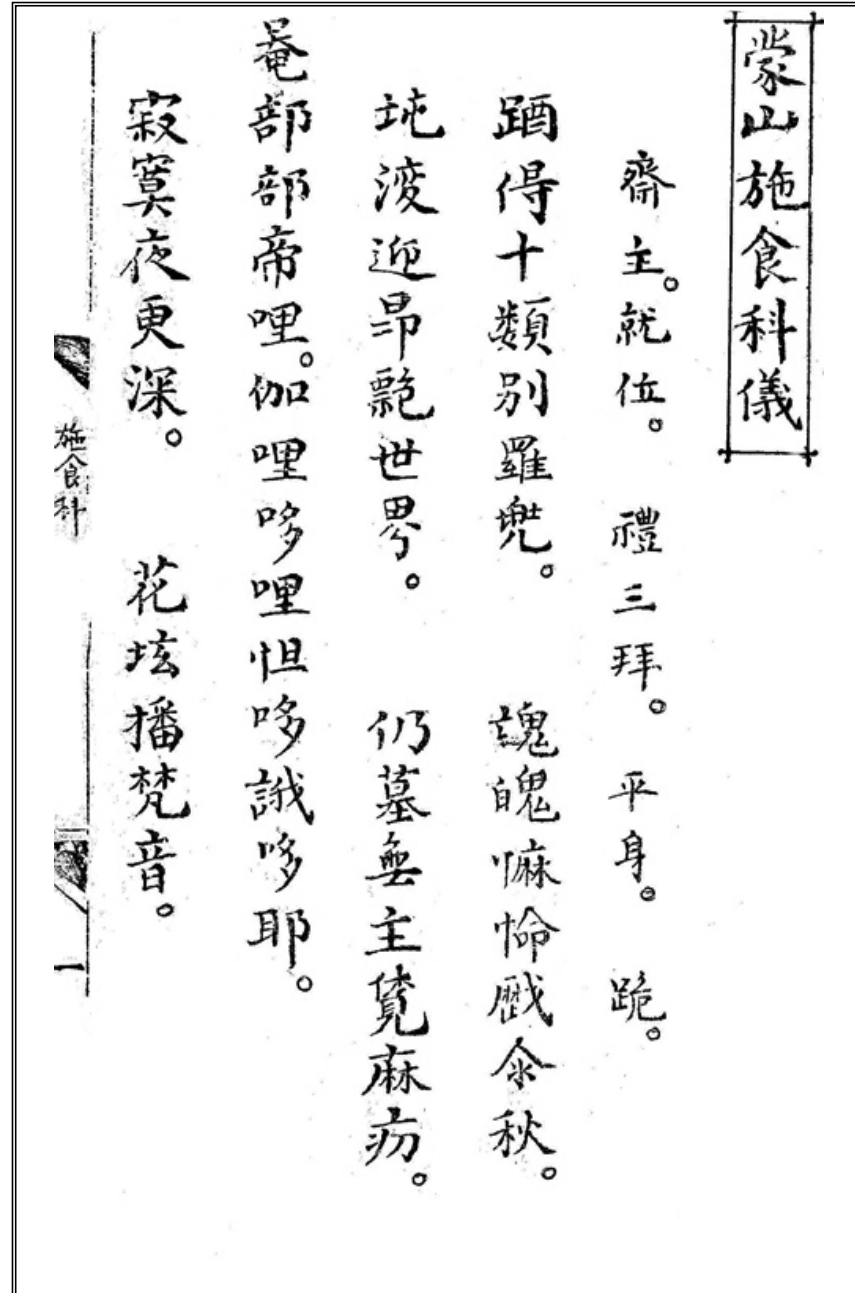 蒙山施食科儀
齋主。就位。 禮三拜。 平身。 跪。
得十類別羅兠。 魄嘛秋。
坉浚迎昻世界。 仍墓無主覓麻疠。
唵部部帝哩。伽哩哆哩怛哆誐哆耶。
寂寞夜更深。 花坛播梵音。
施食科
一